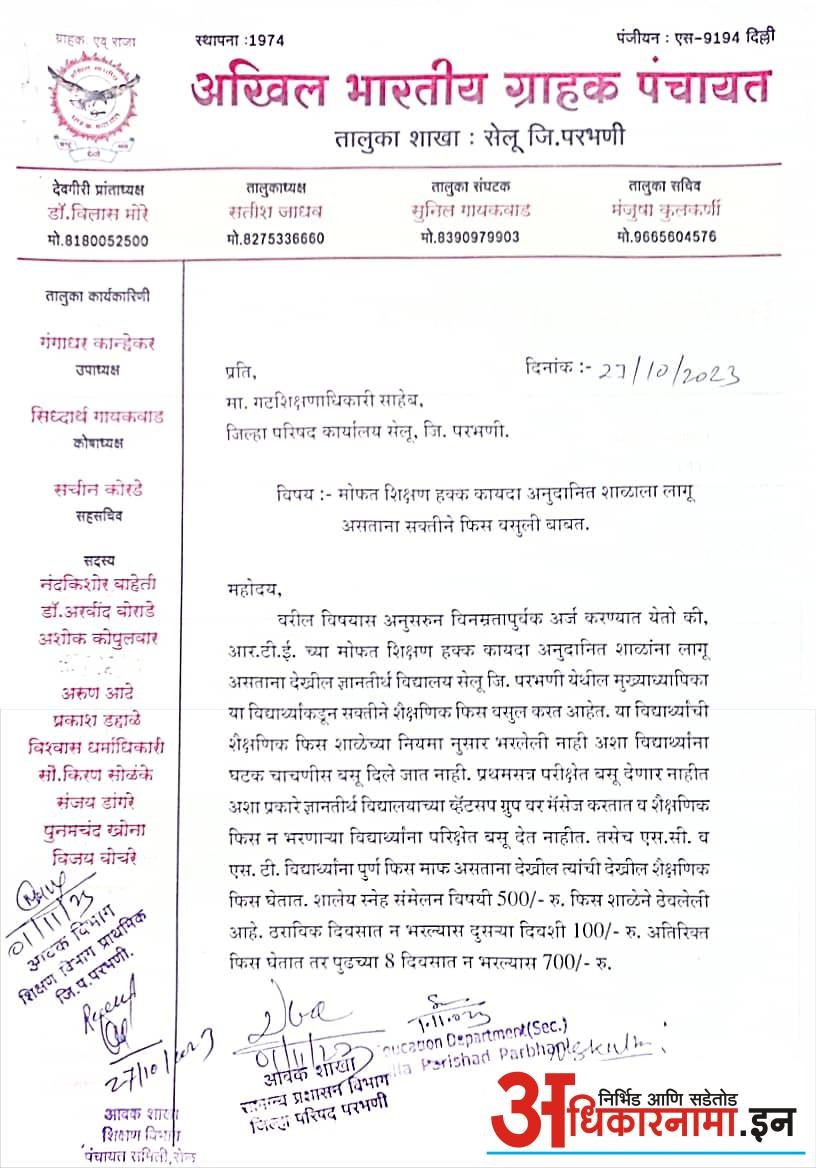 ग्राहक एव् राजा
स्थापना :1974
पंजीयन : एस-9194 दिल्ली
अखिल भारतीय ग्राहक पंचायत
तालुका शाखा : सेलू जि.परभणी
देवगीरी प्रांताध्यक्ष
डॉ.विलास मोरे
मो.8180052500
तालुकाध्यक्ष
सतीश जाधव
मो.8275336660
तालुका संघटक
सुनिल गायकवाड
मो.8390979903
तालुका सचिव
मंजुषा कुलकर्णी
मो.9665604576
तालुका कार्यकारिणी
गंगाधर कान्हेकर
उपाध्यक्ष
सिध्दार्थ गायकवाड
कोषाध्यक्ष
सचीन कोरडे
सहसचिव
सदस्य
नंदकिशोर बाहेती
डॉ.अरवींद बोराडे
अशोक कोपुलवार
अरुण आटे
प्रकाश डहाळे
विश्वास धर्माधिकारी
सौ.किरण सोळंके
संजय डांगरे
पुनमचंद खोना
विजय बोचरे
दिनांक :- 27/10/2023
प्रति,
मा. गटशिक्षणाधिकारी साहेब,
जिल्हा परिषद कार्यालय सेलू, जि. परभणी.
विषय :- मोफत शिक्षण हक्क कायदा अनुदानित शाळाला लागू
असताना सक्तीने फिस वसुली बाबत.
महोदय,
वरील विषयास अनुसरुन विनम्रतापुर्वक अर्ज करण्यात येतो की,
आर.टी.ई. च्या मोफत शिक्षण हक्क कायदा अनुदानित शाळांना लागू
असताना देखील ज्ञानतीर्थ विद्यालय सेलू जि. परभणी येथील मुख्याध्यापिका
या विद्यार्थ्यांकडून सक्तीने शैक्षणिक फिस वसुल करत आहेत. या विद्यार्थ्यांची
शैक्षणिक फिस शाळेच्या नियमा नुसार भरलेली नाही अशा विद्यार्थ्यांना
घटक चाचणीस बसू दिले जात नाही. प्रथमसत्र परीक्षेत बसू देणार नाहीत
अशा प्रकारे ज्ञानतीर्थ विद्यालयाच्या व्हॅटसप ग्रुप वर मॅसेज करतात व शैक्षणिक
फिस न भरणाऱ्या विद्यार्थ्यांना परिक्षेत बसू देत नाहीत. तसेच एस.सी. व
एस. टी. विद्यार्थ्यांना पुर्ण फिस माफ असताना देखील त्यांची देखील शैक्षणिक
फिस घेतात. शालेय स्नेह संमेलन विषयी 500/- रु. फिस शाळेने ठेवलेली
आहे. ठराविक दिवसात न भरल्यास दुसऱ्या दिवशी 100/- रु. अतिरिक्त
फिस घेतात तर पुढच्या 8 दिवसात न भरल्यास 700/- रु.
01/11/23
आवक विभाग
शिक्षण विभाग प्राथमिक
जि.प.परभणी.
27/10/2023
आवक शाखा
शिक्षण विभाग
पंचायत समिती, सेलू
01/11/23
आवक शाखा
सामान्य प्रशासन विभाग
जिल्हा परिषद परभणी
1.11.023
Education Department(Sec.)
Zilla Parishad Parbhani
निर्भिड आणि सडेतोड
अधिकारनामा.इन